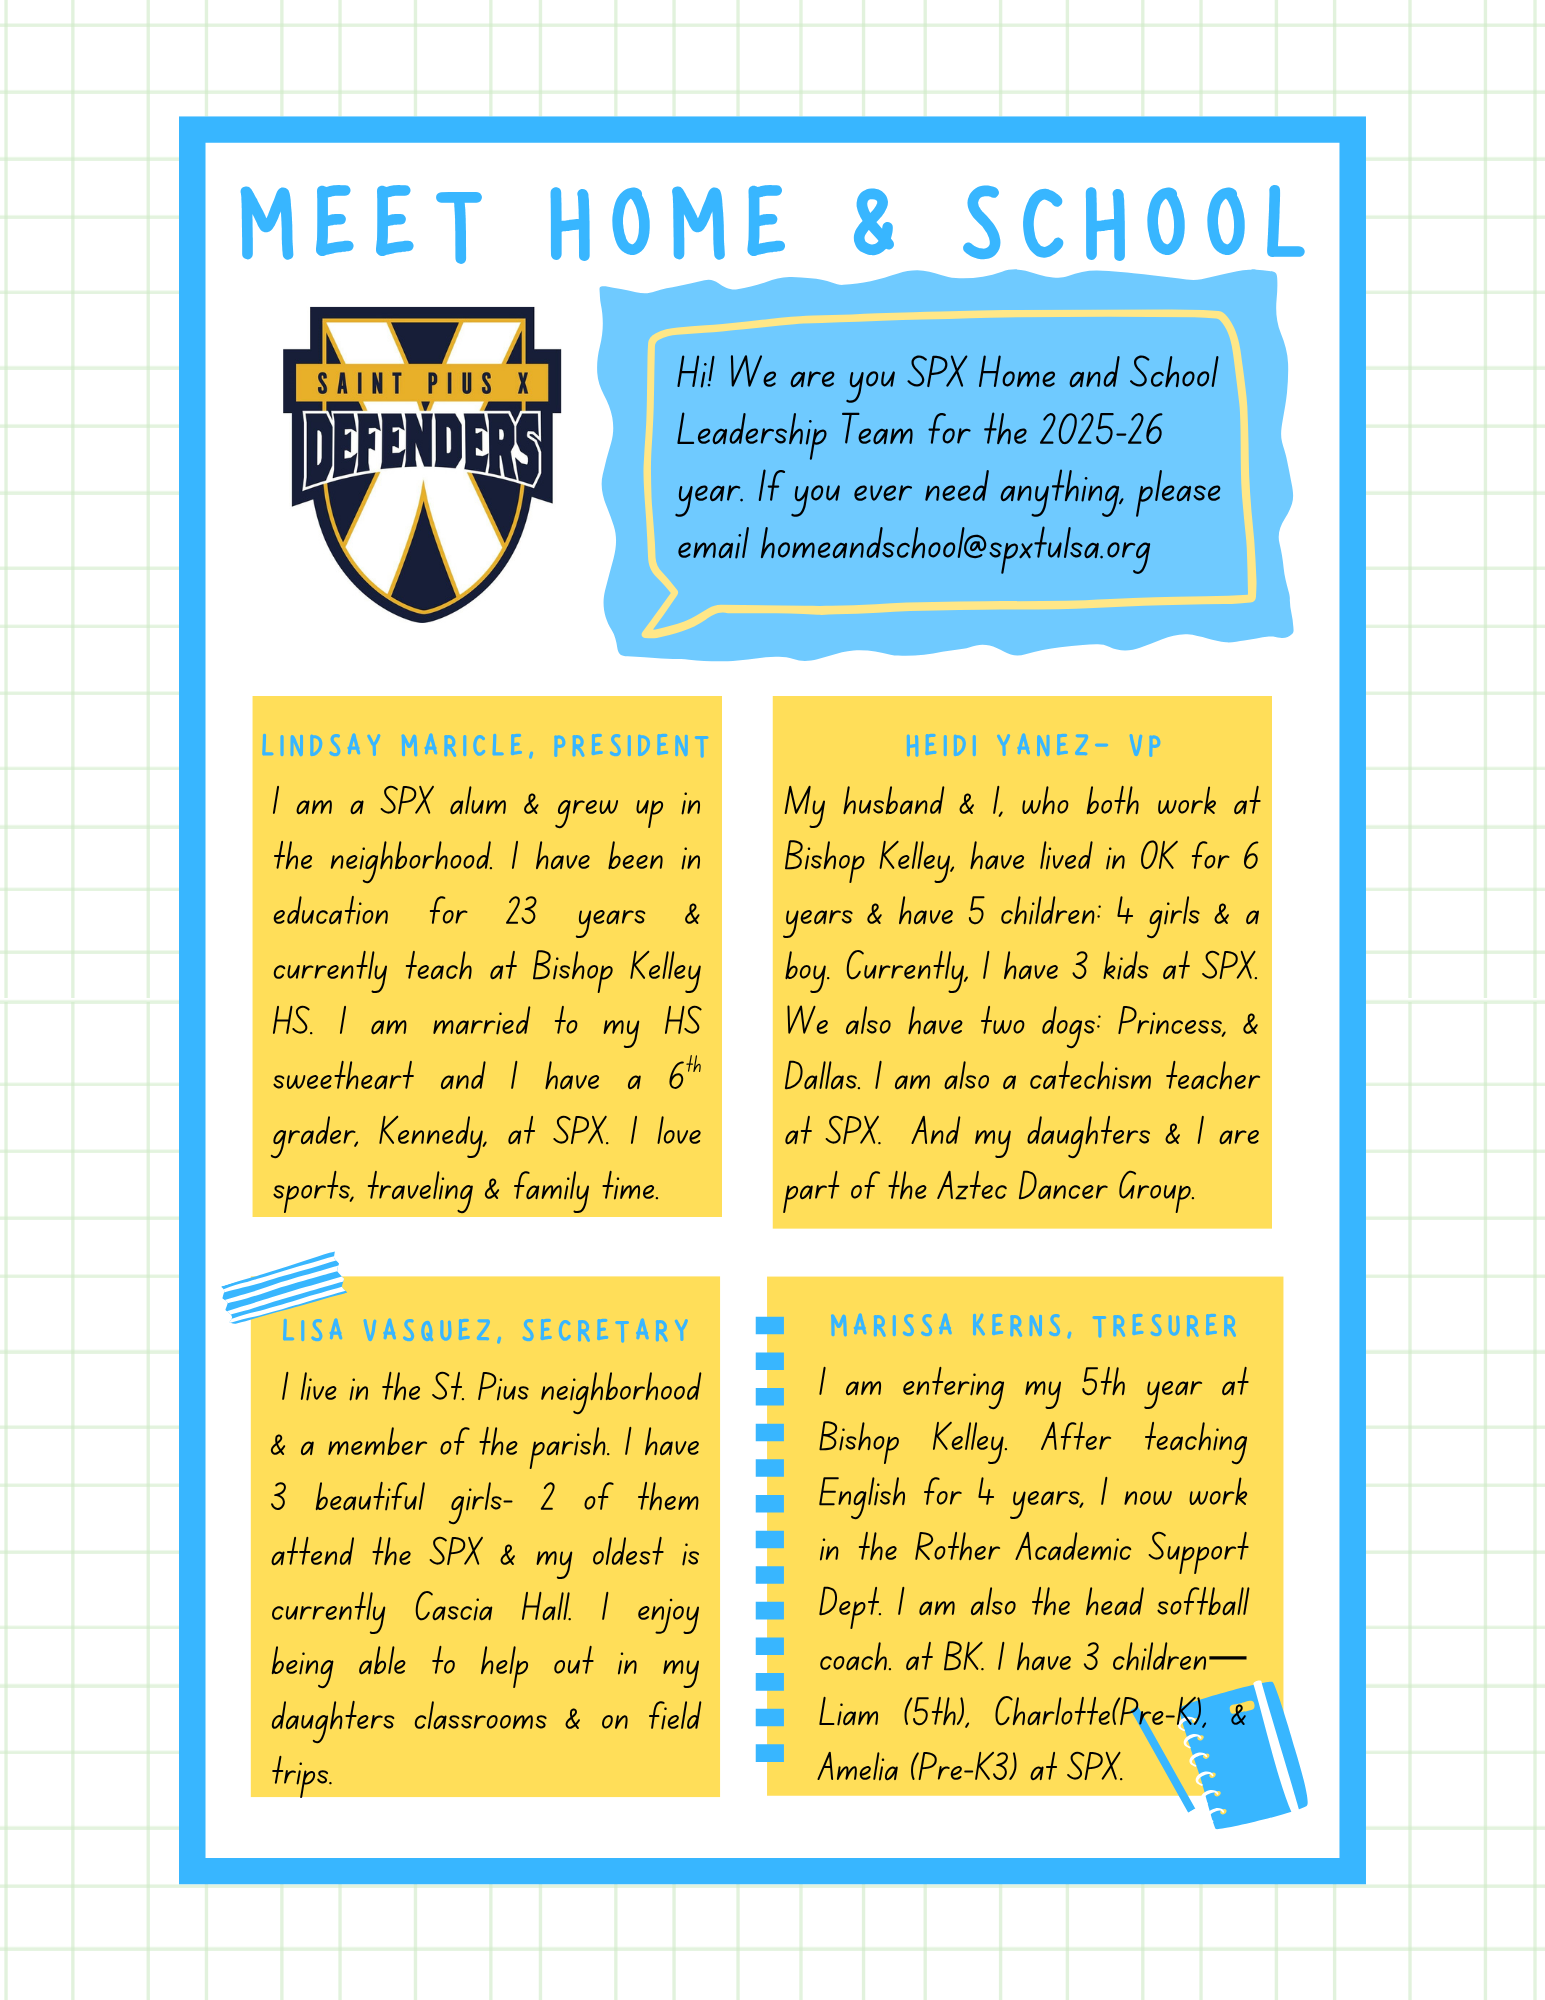 MEET HOME & SCHOOL
SAINT PIUS X
DEFENDERS
Hi! We are you SPX Home and School
Leadership Team for the 2025-26
year. If you ever need anything, please
email homeandschool@spxtulsa.org
LINDSAY MARICLE, PRESIDENT
I am a SPX alum & grew up in
the neighborhood. I have been in
education for 23 years &
currently teach at Bishop Kelley
HS. I am married to my HS
sweetheart and I have a 6th
grader, Kennedy, at SPX. I love
sports, traveling & family time.
HEIDI YANEZ- VP
My husband & I, who both work at
Bishop Kelley, have lived in OK for 6
years & have 5 children: 4 girls & a
boy. Currently, I have 3 kids at SPX.
We also have two dogs: Princess, &
Dallas. I am also a catechism teacher
at SPX. And my daughters & I are
part of the Aztec Dancer Group.
LISA VASQUEZ, SECRETARY
I live in the St. Pius neighborhood
& a member of the parish. I have
3 beautiful girls- 2 of them
attend the SPX & my oldest is
currently Cascia Hall. I enjoy
being able to help out in my
daughters classrooms & on field
trips.
MARISSA KERNS, TRESURER
I am entering my 5th year at
Bishop Kelley. After teaching
English for 4 years, I now work
in the Rother Academic Support
Dept. I am also the head softball
coach. at BK. I have 3 children—
Liam (5th), Charlotte(Pre-K), &
Amelia (Pre-K3) at SPX.